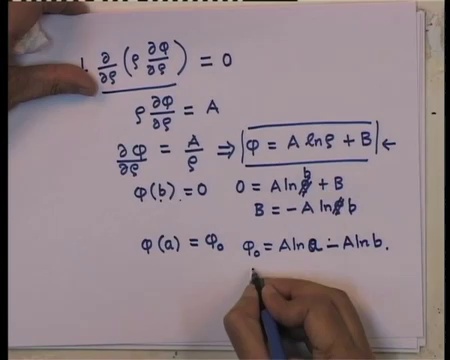 1. ∂/∂ρ (ρ ∂φ/∂ρ) = 0
ρ ∂φ/∂ρ = A
∂φ/∂ρ = A/ρ ⇒ φ = A ln ρ + B ←
φ(b) = 0 0 = A ln b + B
B = - A ln b
φ(a) = φ₀ φ₀ = A ln a - A ln b.